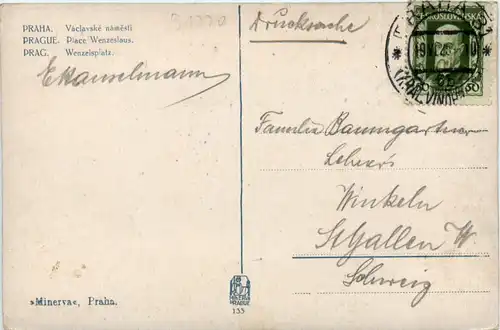 PRAHA. Václavské náměstí
PRAGUE. Place Wenzeslaus.
PRAG. Wenzelsplatz.
Drucksache
Familie Baumgartner
Lehrer's
Winkeln
St. Gallen W
Schweiz
»Minerva«, Praha.
MINERVA
PRAGUE
135